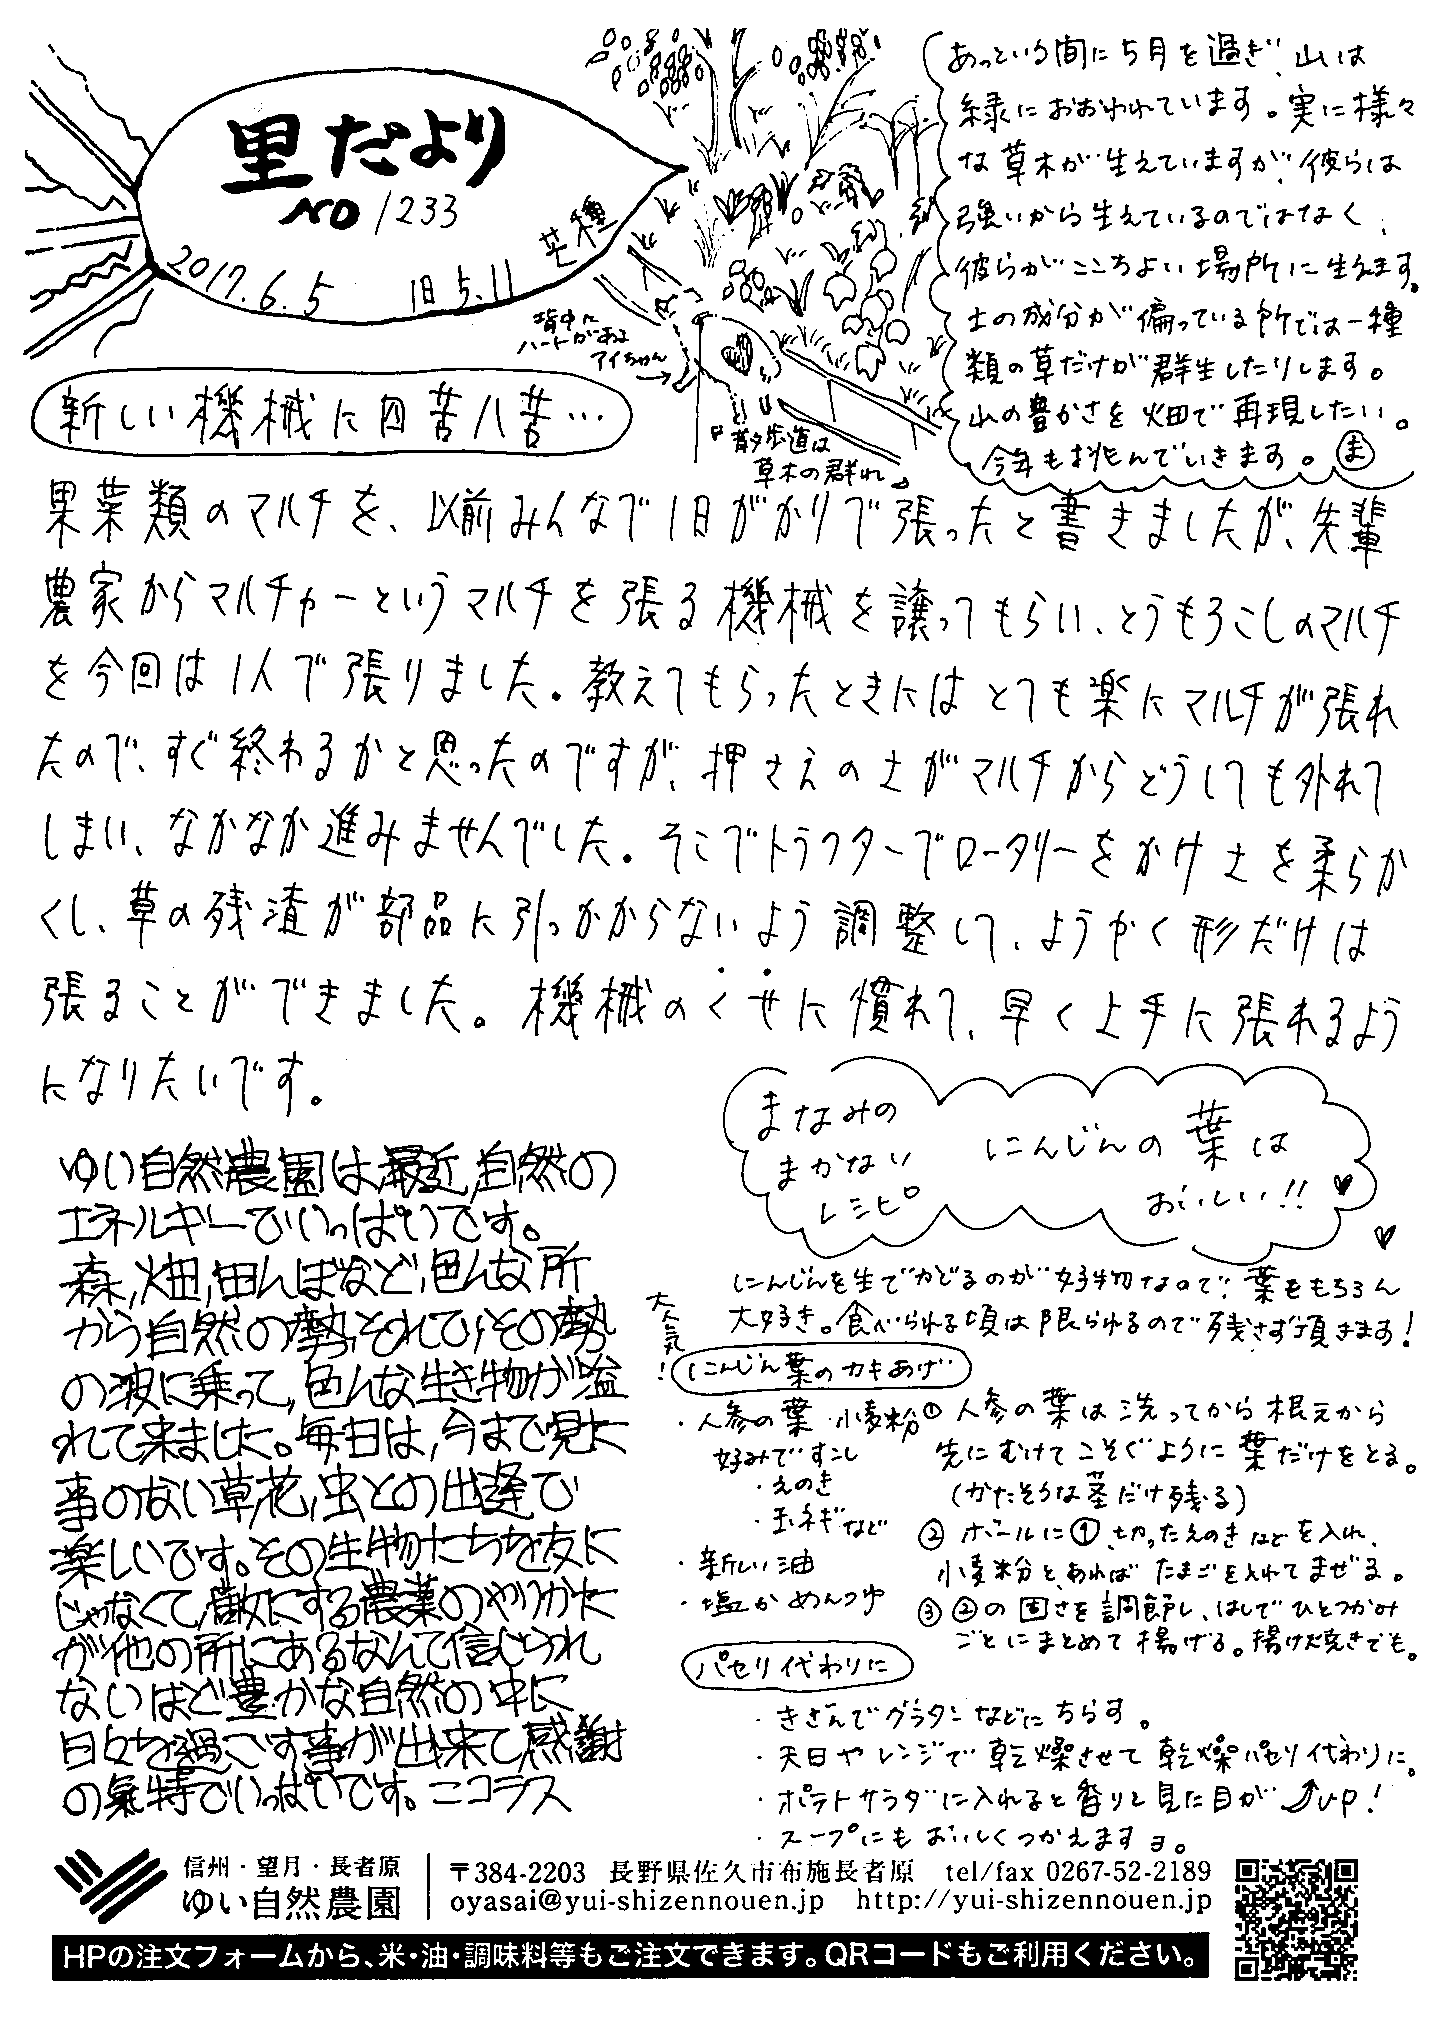 里だより
NO 1233
2017.6.5 旧5.11 芒種
背中に
ハートがある
アイちゃん
散歩道は
草木の群れ
あっという間に5月を過ぎ、山は
緑におおわれています。実に様々
な草木が生えていますが、彼らは
強いから生えているのではなく、
彼らがここちよい場所に生えます。
土の成分が偏っている所では一種
類の草だけが群生したりします。
山の豊かさを畑で再現したい。
今年も挑んでいきます。ま
新しい機械に四苦八苦…
果菜類のマルチを、以前みんなで1日がかりで張ったと書きましたが、先輩
農家からマルチャーというマルチを張る機械を譲ってもらい、とうもろこしのマルチ
を今回は1人で張りました。教えてもらったときにはとても楽にマルチが張れ
たので、すぐ終わるかと思ったのですが、押さえの土がマルチからどうしても外れて
しまい、なかなか進みませんでした。そこでトラクターでロータリーをかけ土を柔らか
くし、草の残渣が部品に引っかからないよう調整して、ようやく形だけは
張ることができました。機械のくせに慣れて、早く上手に張れるよう
になりたいです。
ゆい自然農園は最近,自然の
エネルギーでいっぱいです。
森,畑,田んぼなど,色んな所
から自然の勢,それで,その勢
の波に乗って,色んな生き物が溢
れて来ました。毎日は,今まで見た
事のない草,花,虫との出逢で
楽しいです。その生物たちを友に
じゃなくて,敵にする農業のやりかた
が他の所にあるなんて信じられ
ないほど豊かな自然の中に
日々を過ごす事が出来て感謝
の氣持でいっぱいです。ニコラス
まなみの
まかない
レシピ
にんじんの葉は
おいしい!!
にんじんを生でかじるのが好物なので、葉をもちろん
大好き。食べられる頃は限られるので残さず頂きます!
大人気!
にんじん葉のカキあげ
・人参の葉・小麦粉
好みですこし
・えのき
・玉ネギなど
・新しい油
・塩かめんつゆ
①人参の葉は洗ってから根元から
先にむけてこそぐように葉だけをとる。
(かたそうな茎だけ残る)
②ボールに①、切ったえのきなどを入れ、
小麦粉と、あればたまごを入れてまぜる。
③②の固さを調節し、はしでひとつかみ
ごとにまとめて揚げる。揚げ焼きでも。
パセリ代わりに
・きざんでグラタンなどにちらす。
・天日やレンジで乾燥させて乾燥パセリ代わりに。
・ポテトサラダに入れると香りと見た目がup!
・スープにもおいしくつかえますョ。
信州・望月・長者原
ゆい自然農園
〒384-2203 長野県佐久市布施長者原 tel/fax 0267-52-2189
oyasai@yui-shizennouen.jp http://yui-shizennouen.jp
HPの注文フォームから、米・油・調味料等もご注文できます。QRコードもご利用ください。